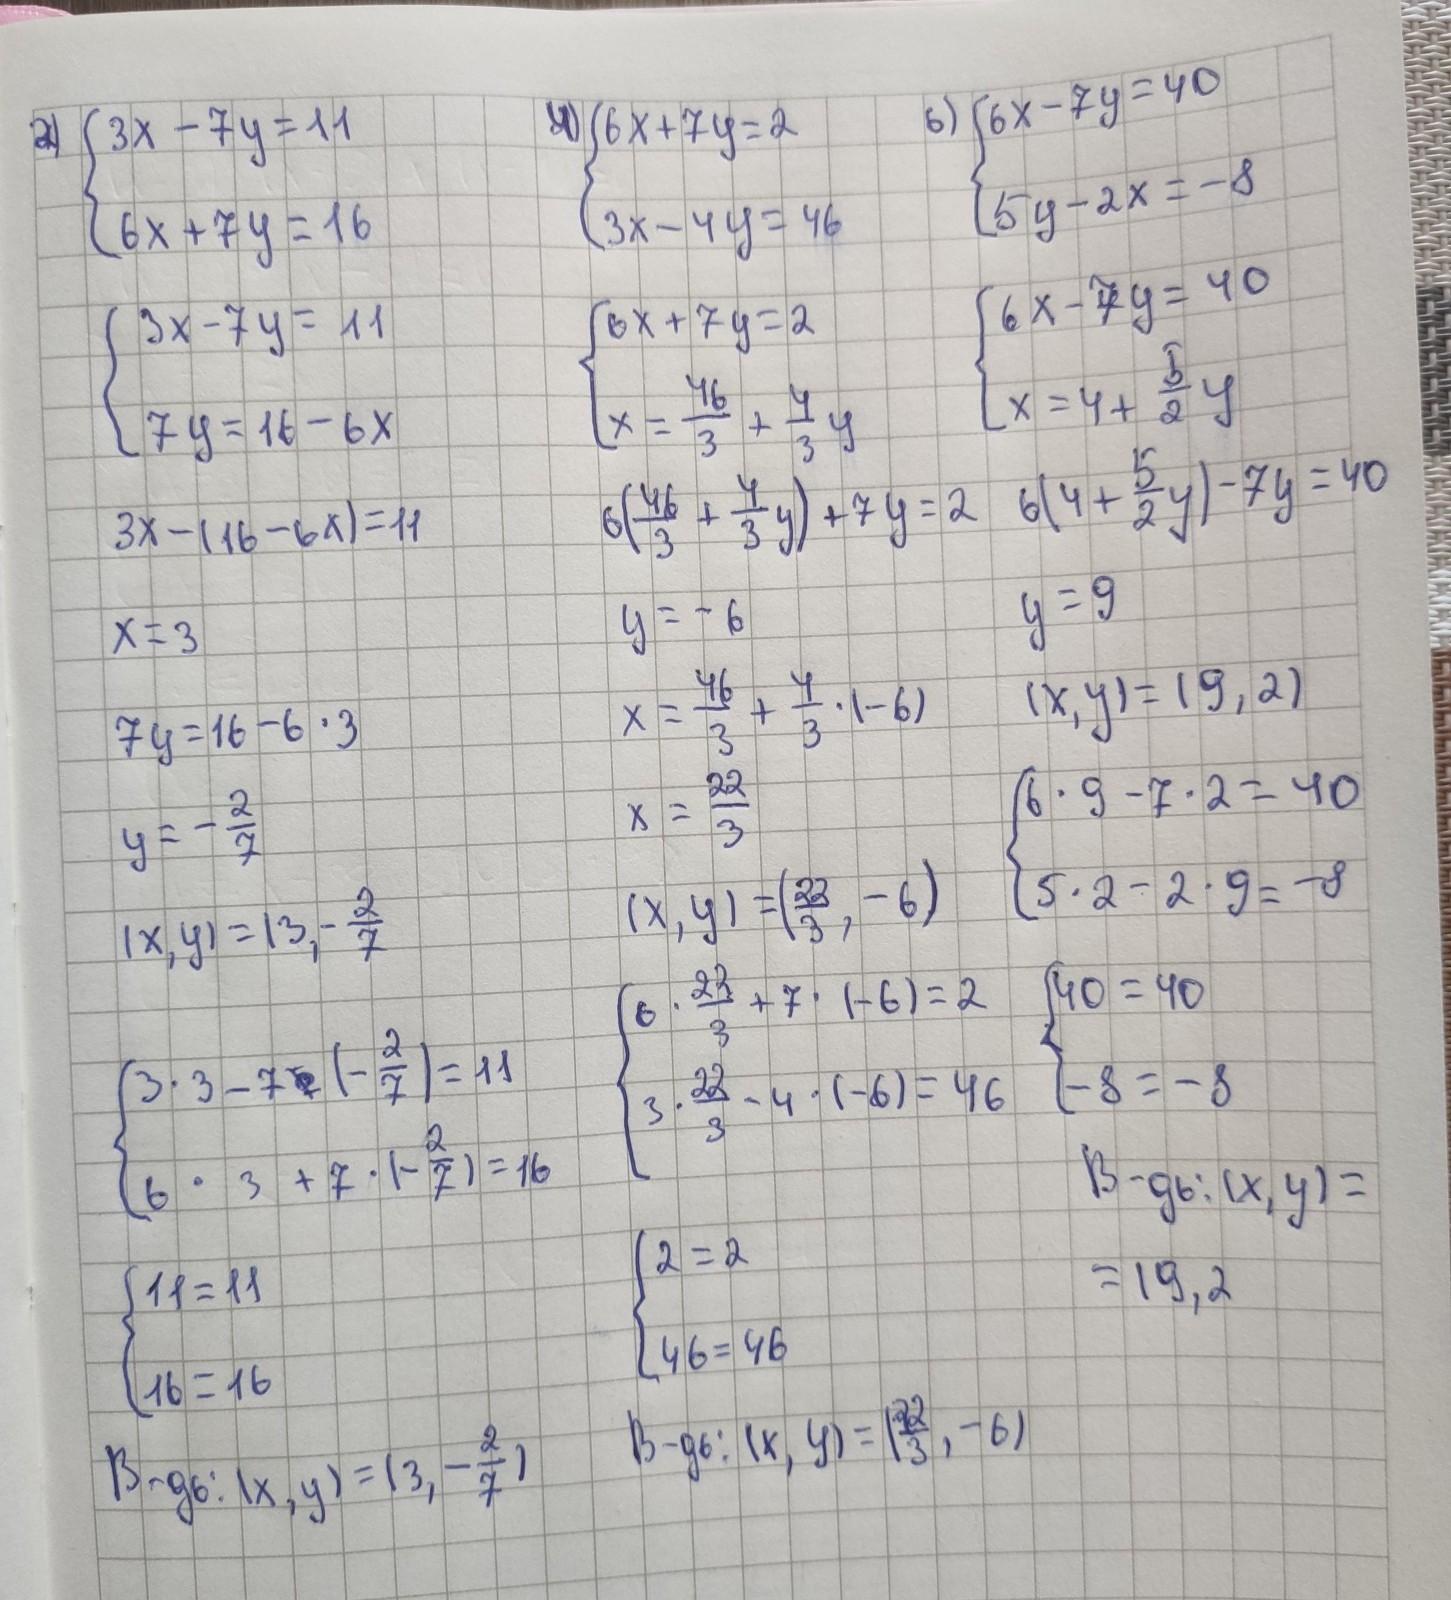 2) {3x - 7y = 11
6x + 7y = 16
{3x - 7y = 11
7y = 16 - 6x
3x - (16 - 6x) = 11
x = 3
7y = 16 - 6 · 3
y = - 2/7
(x, y) = (3, - 2/7
{3 · 3 - 7 (- 2/7) = 11
6 · 3 + 7 · (- 2/7) = 16
{11 = 11
16 = 16
В-дь: (x, y) = (3, - 2/7)
4) {6x + 7y = 2
3x - 4y = 46
{6x + 7y = 2
x = 46/3 + 4/3 y
6(46/3 + 4/3 y) + 7y = 2
y = - 6
x = 46/3 + 4/3 · (-6)
x = 22/3
(x, y) = (22/3, -6)
{6 · 22/3 + 7 · (-6) = 2
3 · 22/3 - 4 · (-6) = 46
{2 = 2
46 = 46
В-дь: (x, y) = (22/3, -6)
6) {6x - 7y = 40
5y - 2x = -8
{6x - 7y = 40
x = 4 + 5/2 y
6(4 + 5/2 y) - 7y = 40
y = 9
(x, y) = (9, 2)
{6 · 9 - 7 · 2 = 40
5 · 2 - 2 · 9 = -8
{40 = 40
-8 = -8
В-дь: (x, y) =
= (9, 2